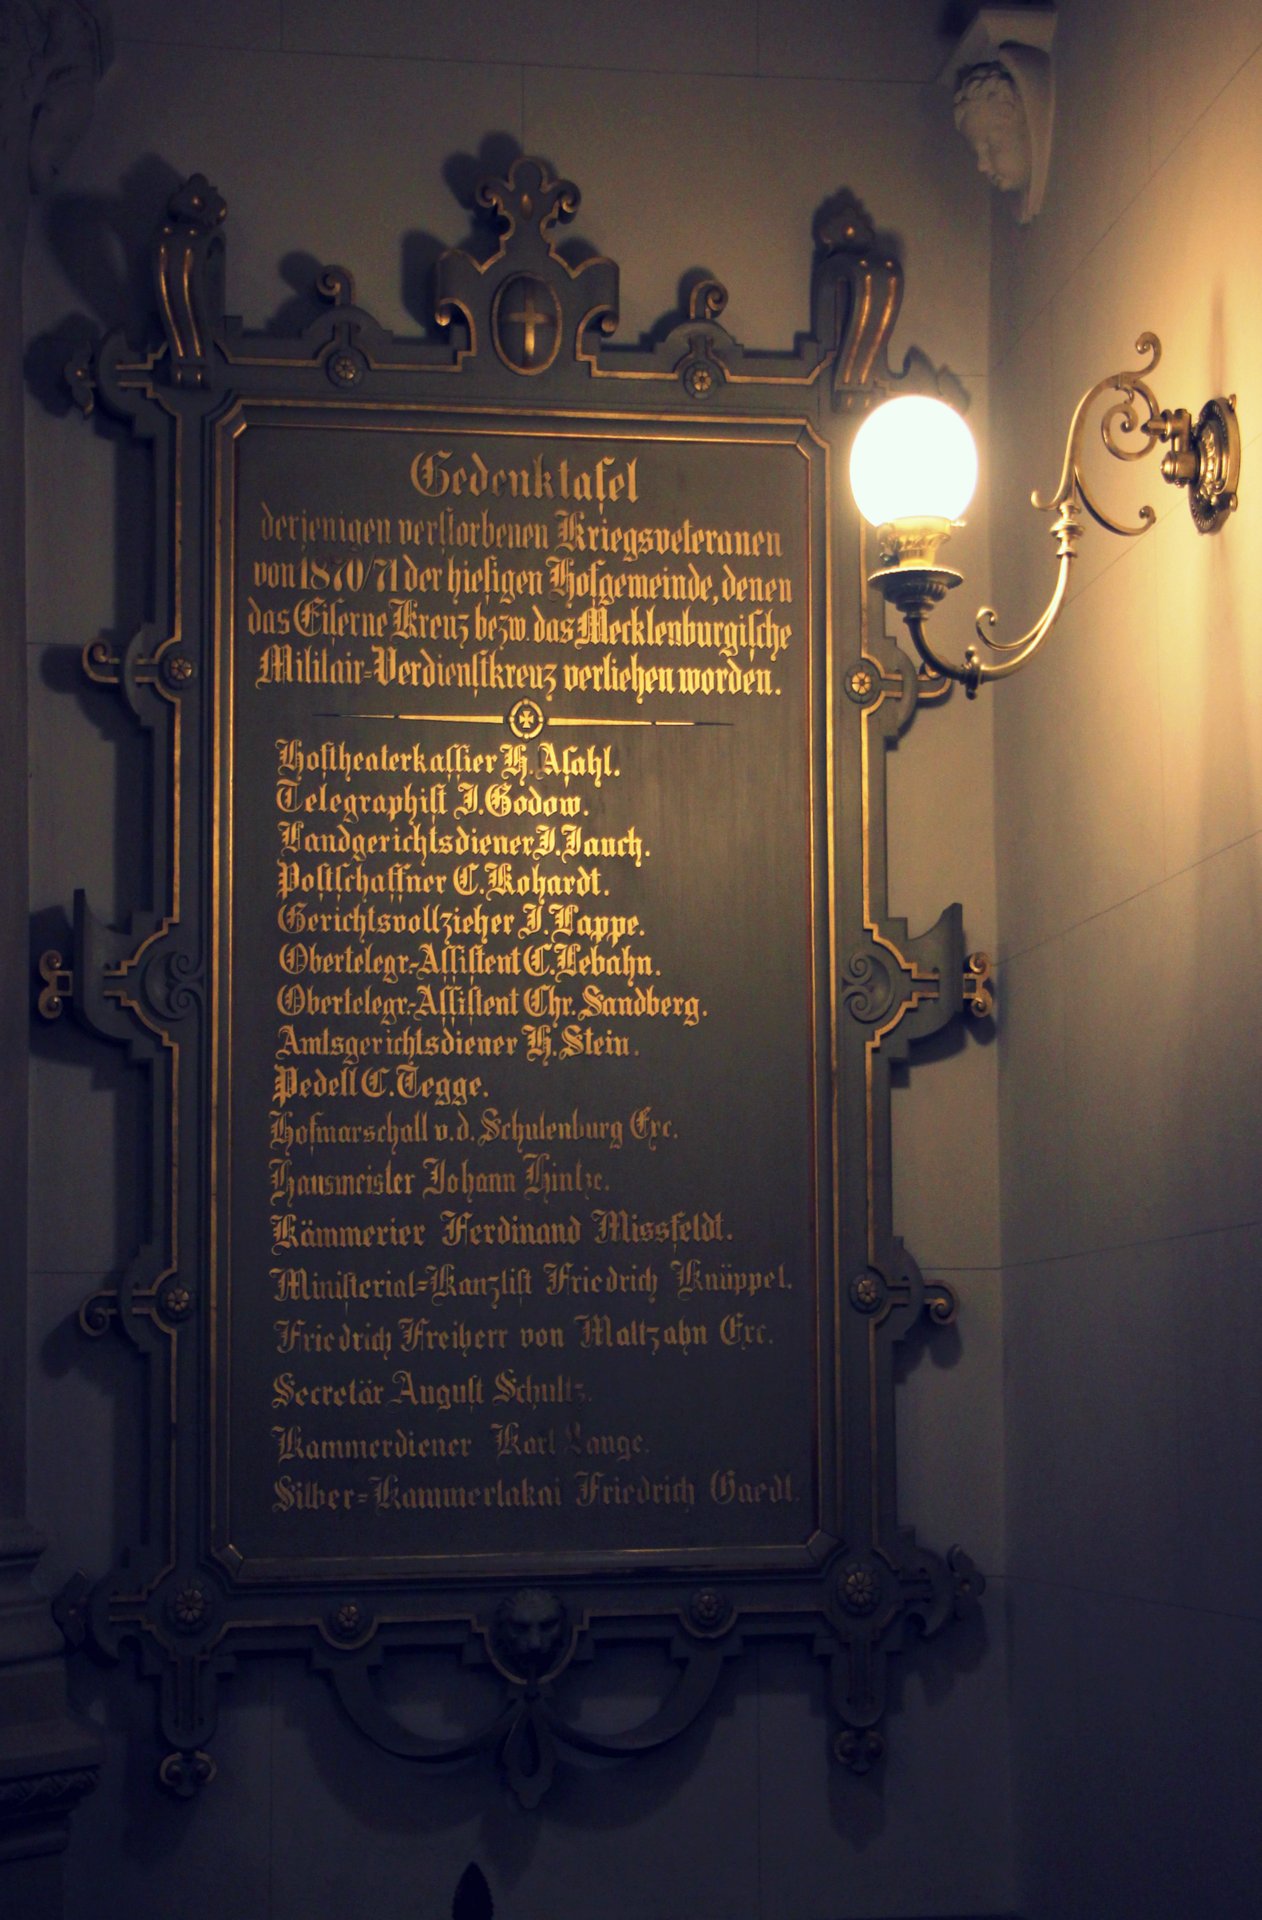 Gedenktafel
derjenigen verstorbenen Kriegsveteranen
von 1870/71 der hiesigen Hofgemeinde, denen
das Eiserne Kreuz bezw. das Mecklenburgische
Militair-Verdienstkreuz verliehen worden.
Hoftheaterkassier H. Asahl.
Telegraphist J. Godow.
Landgerichtsdiener J. Jauch.
Postschaffner C. Kohardt.
Gerichtsvollzieher J. Lappe.
Obertelegr.-Assistent C. Lebahn.
Obertelegr.-Assistent Chr. Sandberg.
Amtsgerichtsdiener H. Stein.
Pedell C. Tegge.
Hofmarschall v. d. Schulenburg Exc.
Hausmeister Johann Hintze.
Kämmerier Ferdinand Missfeldt.
Ministerial-Kanzlist Friedrich Knüppel.
Friedrich Freiherr von Maltzahn Exc.
Secretär August Schultz.
Kammerdiener Karl Lange.
Silber-Kammerlakai Friedrich Gaedt.